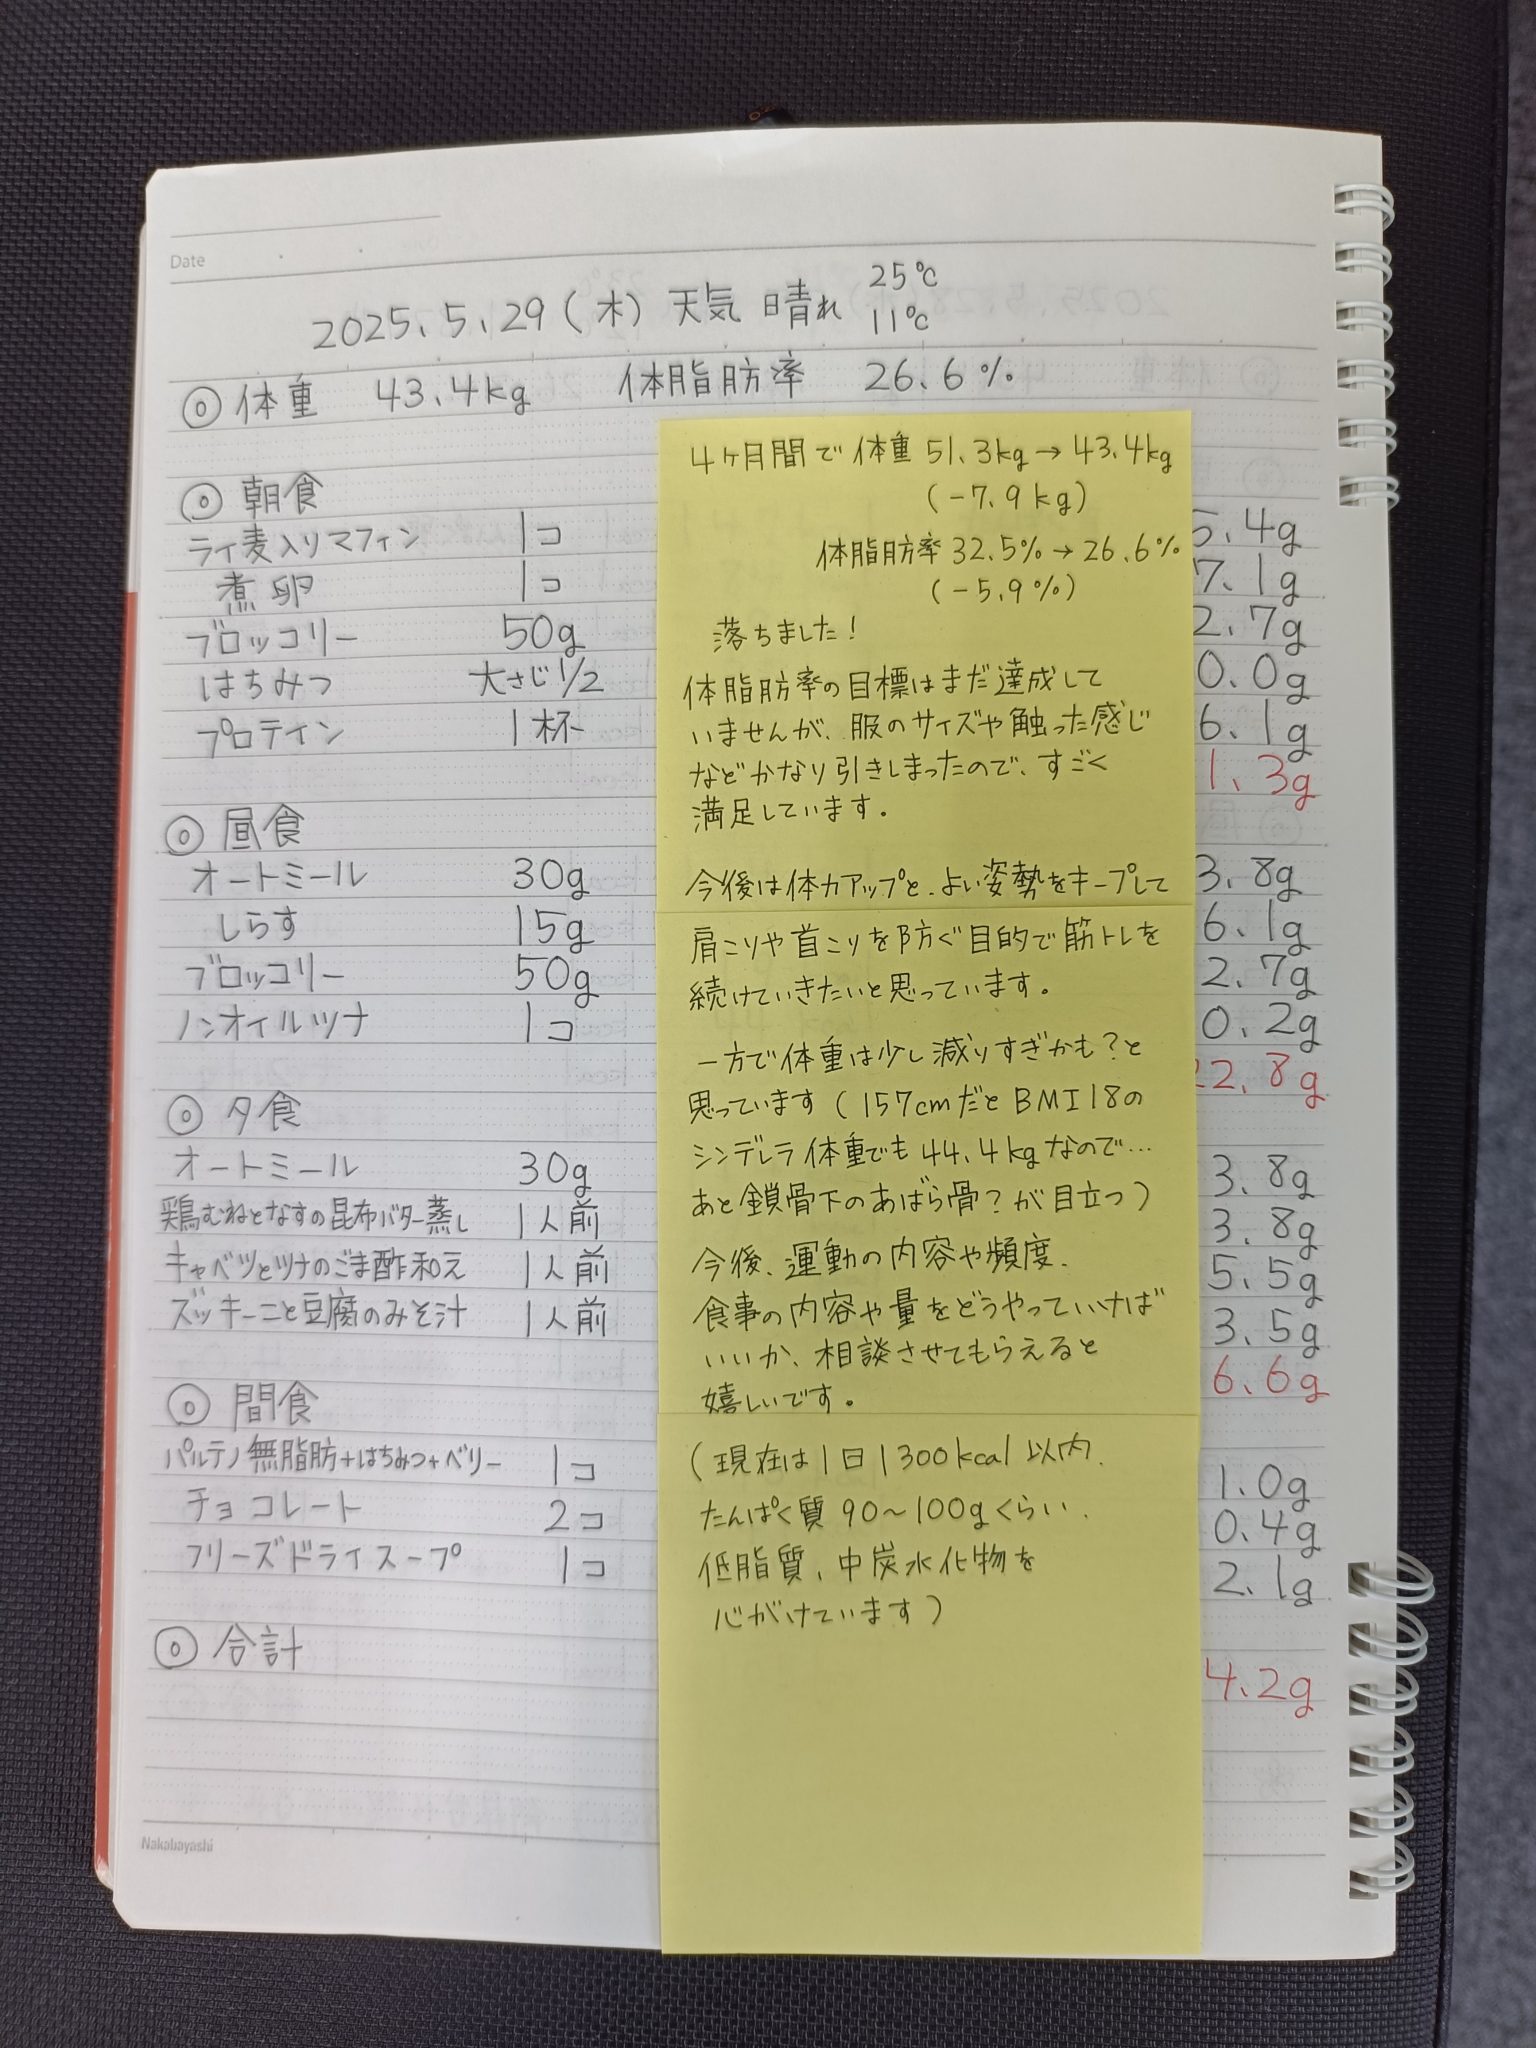 Date
2025.5.29(木) 天気 晴れ 25℃
11℃
◎体重 43.4kg 体脂肪率 26.6%
◎朝食
ライ麦入りマフィン 1コ 5.4g
煮卵 1コ 7.1g
ブロッコリー 50g 2.7g
はちみつ 大さじ1/2 0.0g
プロテイン 1杯 6.1g
1.3g
◎昼食
オートミール 30g 3.8g
しらす 15g 6.1g
ブロッコリー 50g 2.7g
ノンオイルツナ 1コ 0.2g
22.8g
◎夕食
オートミール 30g 3.8g
鶏むねとなすの昆布バター蒸し 1人前 3.8g
キャベツとツナのごま酢和え 1人前 5.5g
ズッキーニと豆腐のみそ汁 1人前 3.5g
6.6g
◎間食
パルテノ無脂肪+はちみつ+ベリー 1コ 1.0g
チョコレート 2コ 0.4g
フリーズドライスープ 1コ 2.1g
◎合計
4.2g
Nakabayashi
4ヶ月間で体重51.3kg→43.4kg
(-7.9kg)
体脂肪率32.5%→26.6%
(-5.9%)
落ちました!
体脂肪率の目標はまだ達成して
いませんが、服のサイズや触った感じ
などかなり引きしまったので、すごく
満足しています。
今後は体力アップと、よい姿勢をキープして
肩こりや首こりを防ぐ目的で筋トレを
続けていきたいと思っています。
一方で体重は少し減りすぎかも?と
思っています(157cmだとBMI18の
シンデレラ体重でも44.4kgなので…
あと鎖骨下のあばら骨?が目立つ)
今後、運動の内容や頻度、
食事の内容や量をどうやっていけば
いいか、相談させてもらえると
嬉しいです。
(現在は1日1300kcal以内、
たんぱく質90~100gくらい、
低脂質、中炭水化物を
心がけています)